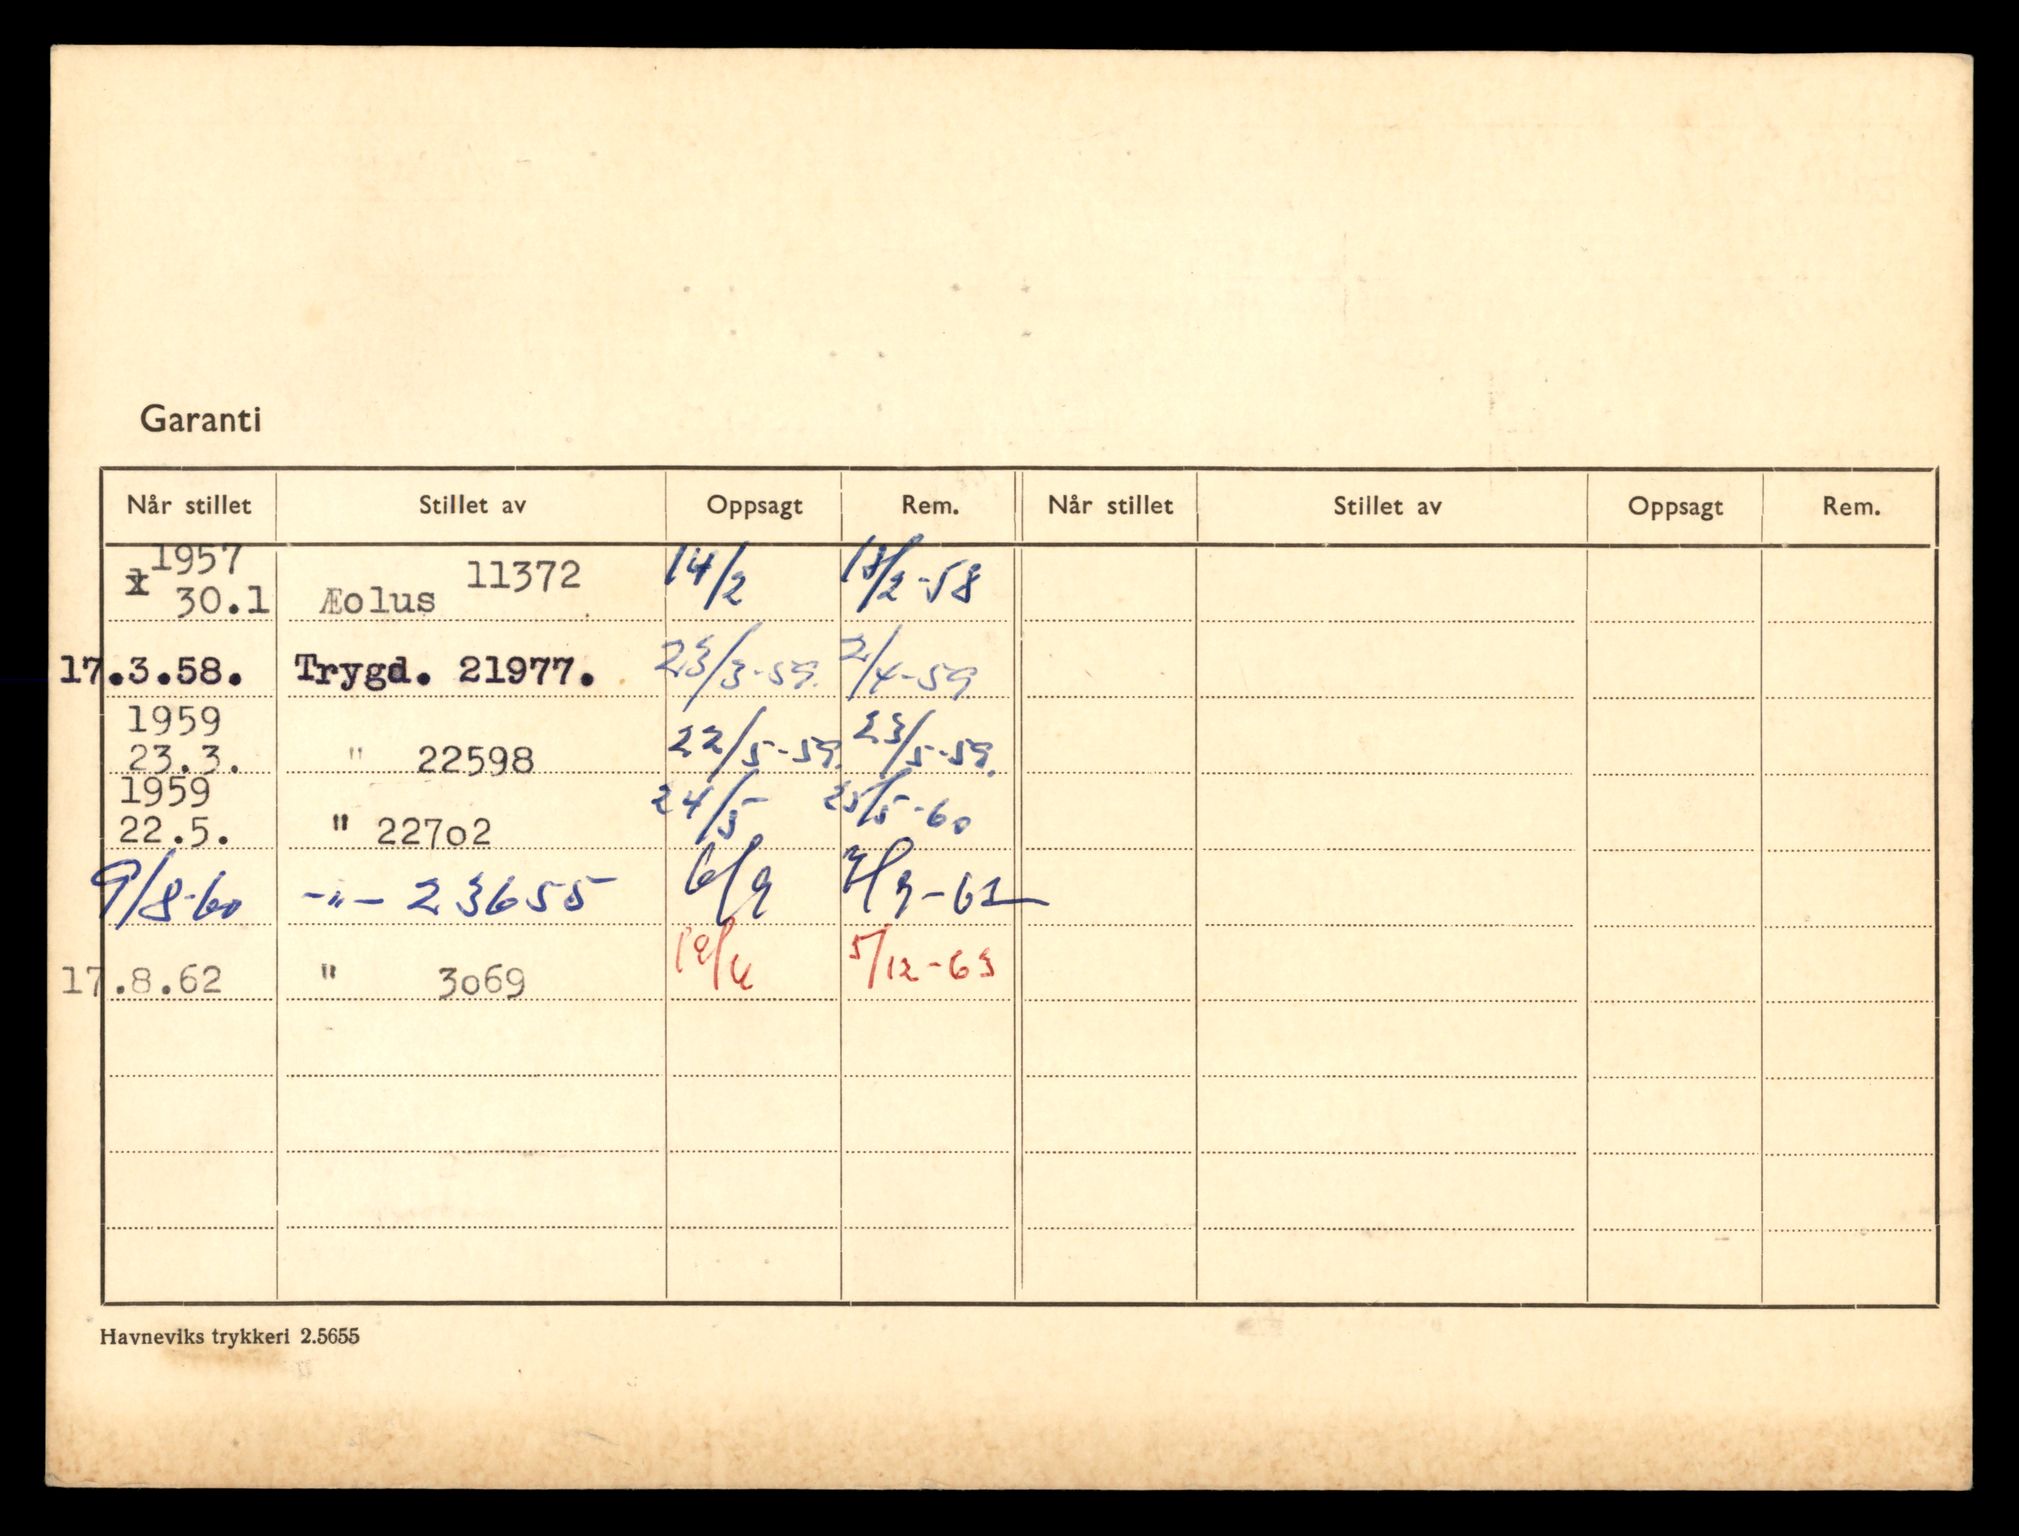 Garanti
Når stillet Stillet av Oppsagt Rem. Når stillet Stillet av Oppsagt Rem.
1957
30.1 Æolus 11372 14/2 18/2-58
17.3.58. Trygd. 21977. 23/3-59. 2/4-59
1959
23.3. " 22598 22/5-59. 23/5-59.
1959
22.5. " 22702 24/5 25/5-60
9/8-60 -"- 23655 6/9 7/9-62
17.8.62 " 3069 5/12-63
Havneviks trykkeri 2.5655